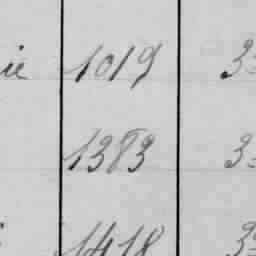 ie 1019 3
1383 3
1418 3